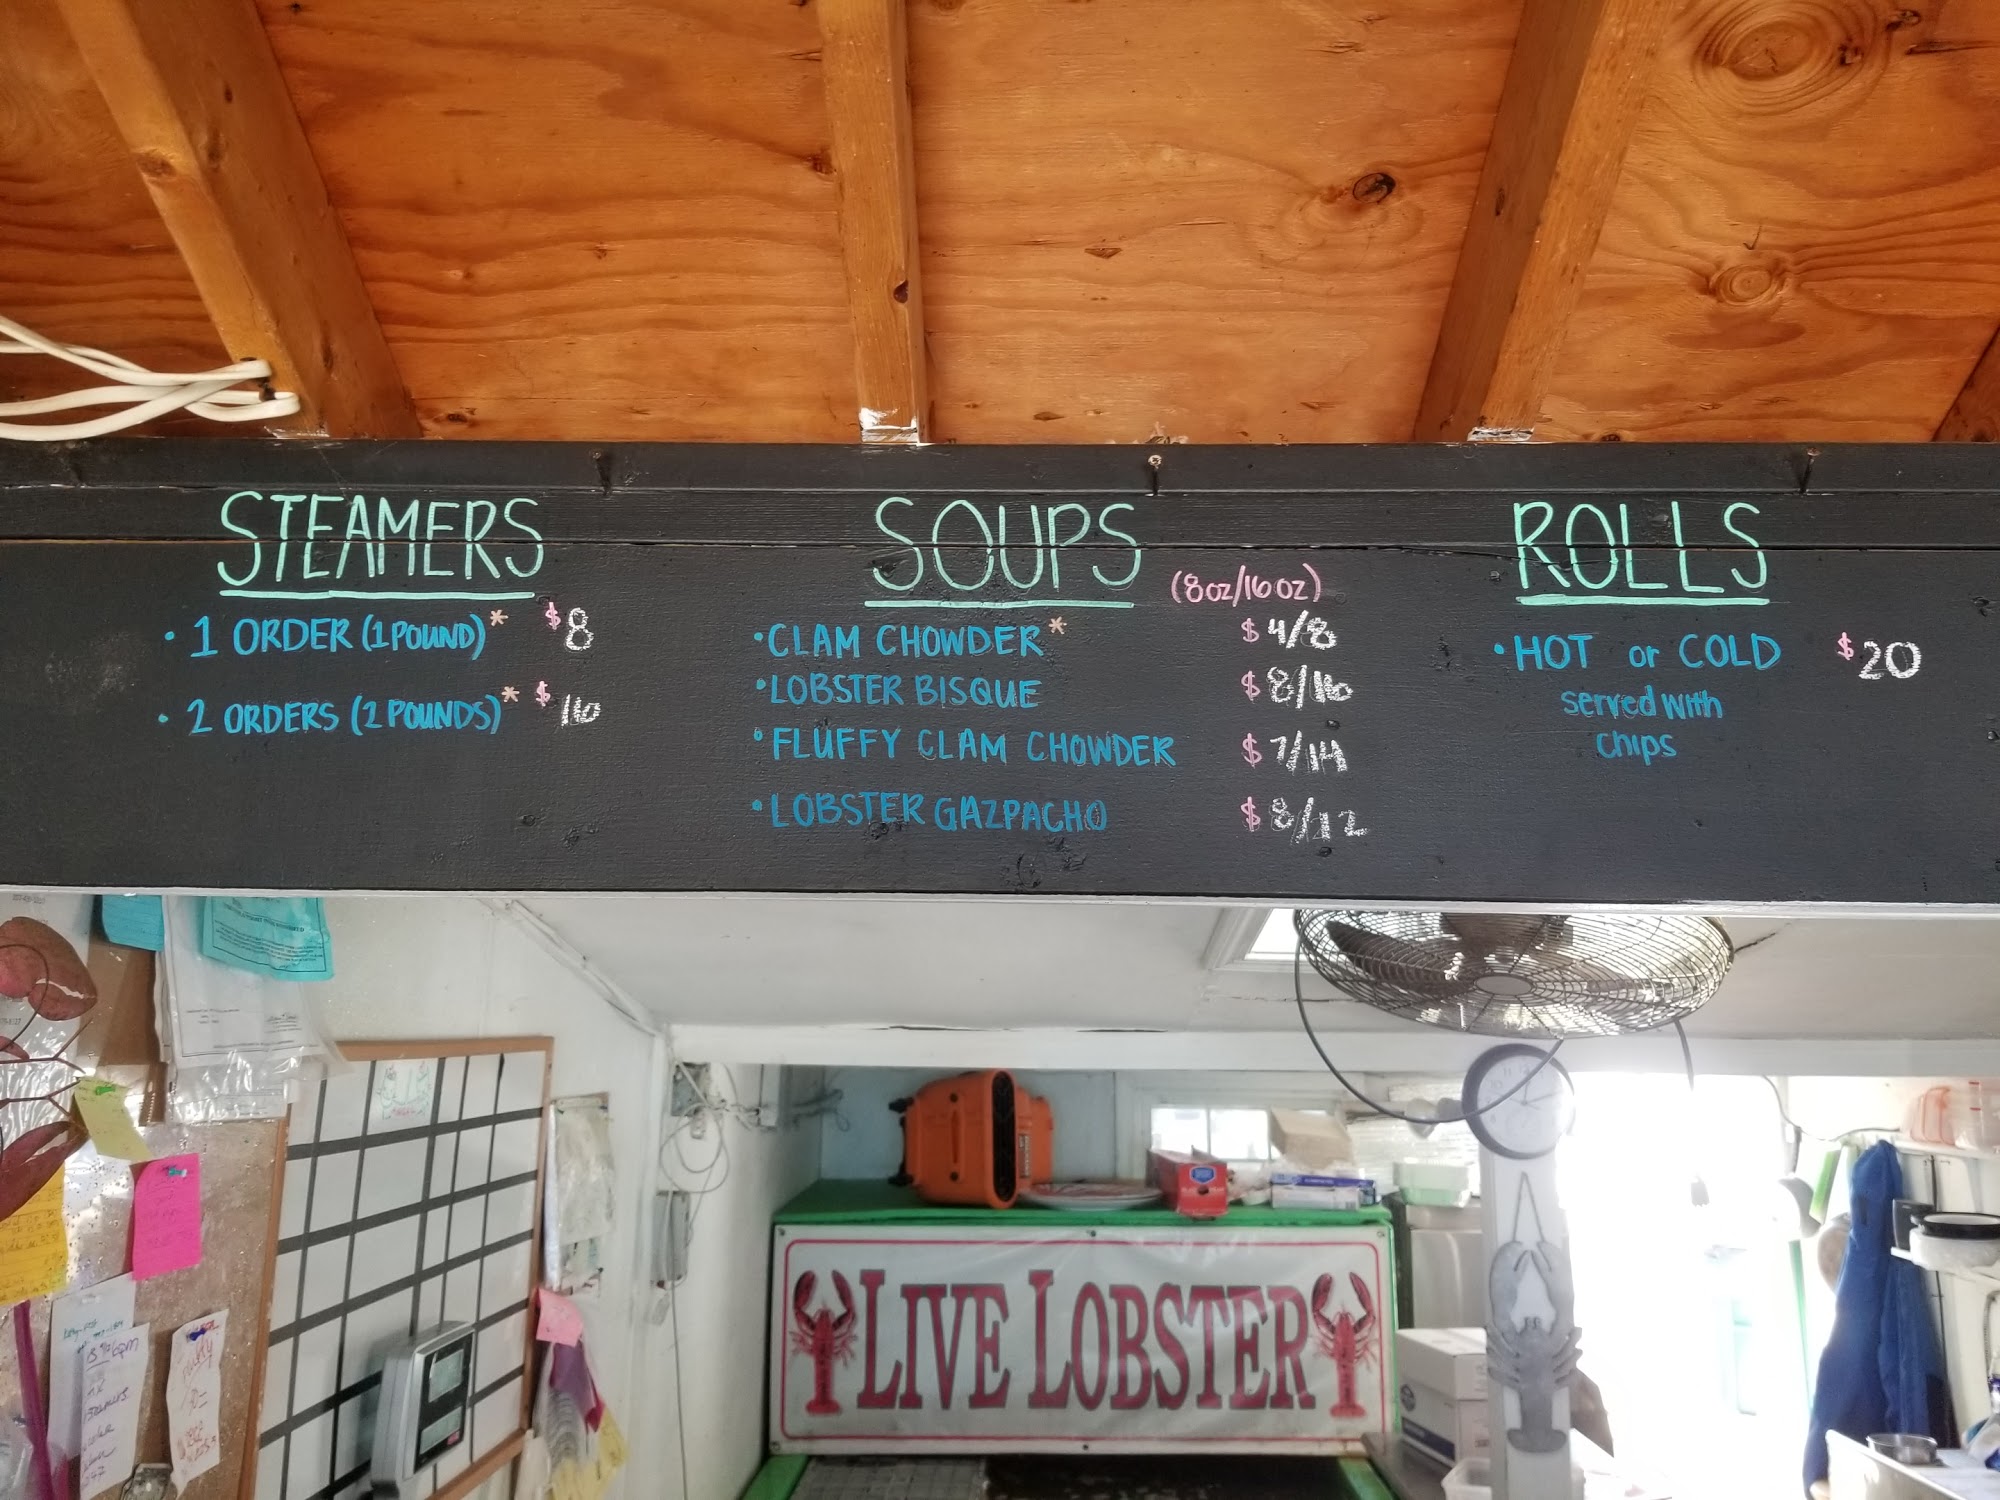 STEAMERS
• 1 ORDER (1 POUND)* $8
• 2 ORDERS (2 POUNDS)* $16
SOUPS
(8oz/16oz)
• CLAM CHOWDER* $4/8
• LOBSTER BISQUE $8/16
• FLUFFY CLAM CHOWDER $7/14
• LOBSTER GAZPACHO $8/12
ROLLS
• HOT or COLD $20
served with
chips
LIVE LOBSTER